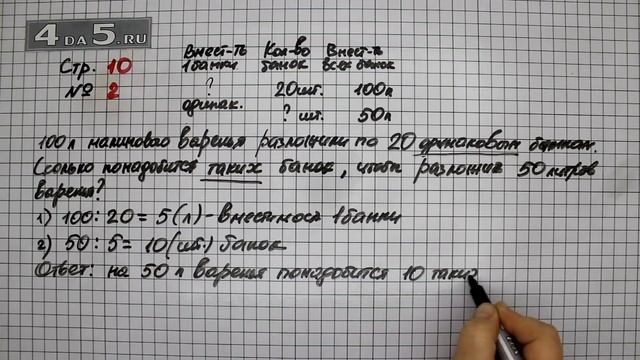 4DA5.RU
Стр. 10
№ 2
Вмест-ть 1 банки Кол-во банок Вмест-ть всех банок
? 20шт. 100л
одинак. ? шт. 50л
100л малинового варенья разложили по 20 одинаковым банкам.
Сколько понадобится таких банок, чтобы разложить 50 литров
варенья?
1) 100:20=5(л)-вместимость 1банки
2) 50:5=10(шт.) банок
Ответ: на 50 л варенья понадобится 10 таких